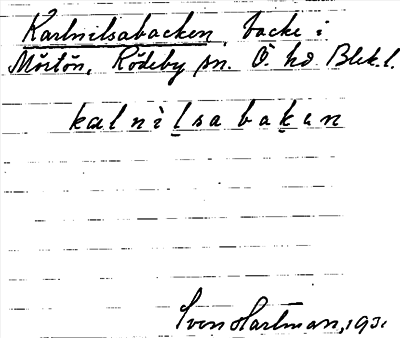 Karlnilsabacken, backe i
Mörtön, Rödeby sn. Ö. hd Blek. l.
kalnìlsabakan
Sven Hartman, 1931